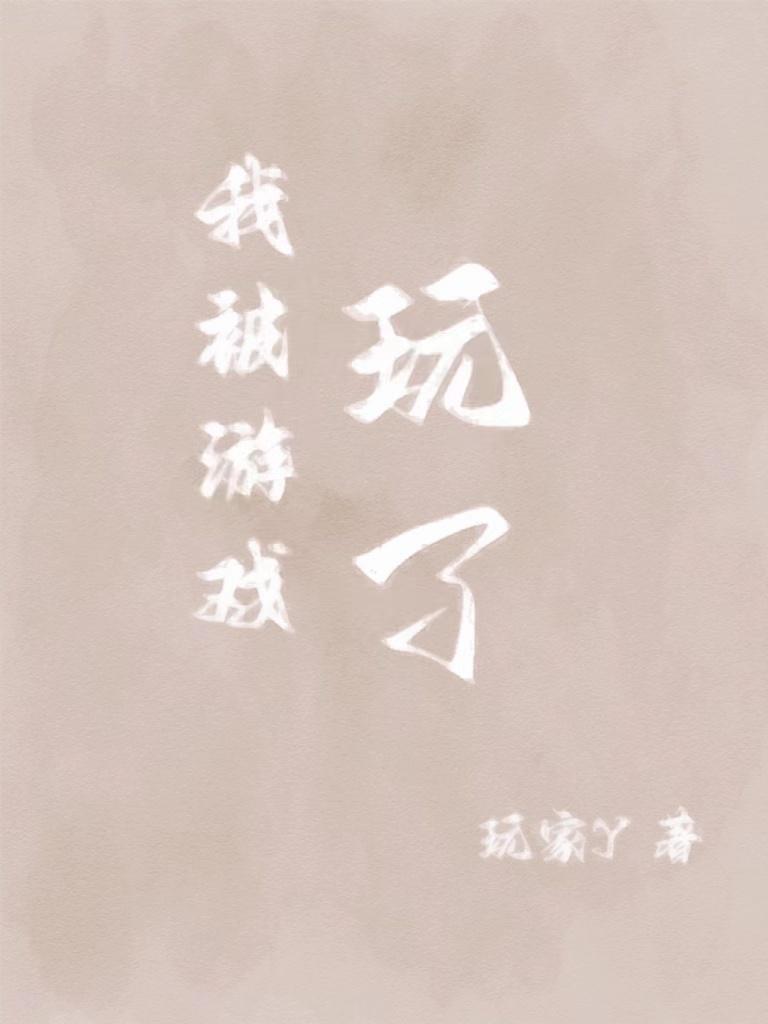 我被游戏
玩了
玩家丫 著